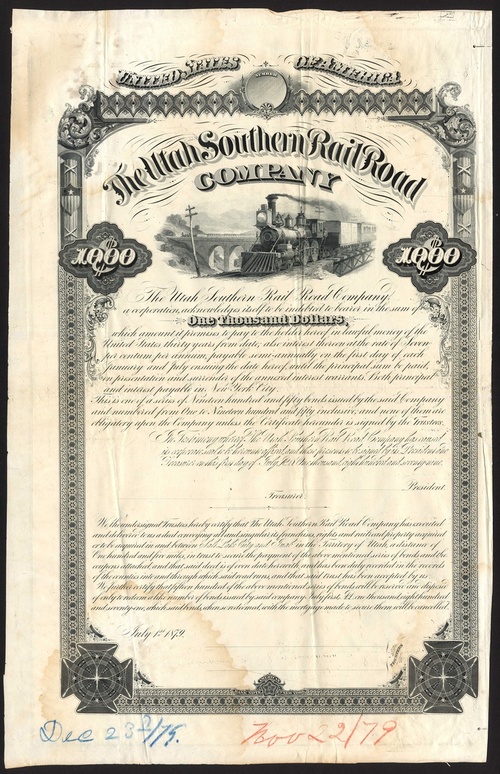 UNITED STATES OF AMERICA
NUMBER
The Utah Southern Rail Road
COMPANY
$1000 $1000
The Utah Southern Rail Road Company,
a corporation, acknowledges itself to be indebted to bearer in the sum of
One Thousand Dollars,
which amount it promises to pay to the holder hereof in lawful money of the
United States thirty years from date, also interest thereon at the rate of Seven
per centum per annum, payable semi-annually on the first day of each
January and July ensuing the date hereof until the principal sum be paid,
on presentation and surrender of the annexed interest warrants. Both principal
and interest payable in New York City.
This is one of a series of Nineteen hundred and fifty bonds issued by the said Company
and numbered from One to Nineteen hundred and fifty inclusive, and none of them are
obligatory upon the Company unless the Certificate hereunder is signed by the Trustees.
In Testimony whereof, The Utah Southern Rail Road Company has caused
its corporate seal to be hereunto affixed, and these presents to be signed by its President and
Treasurer on this first day of July, A.D. One thousand eight hundred and seventy nine.
President.
Treasurer.
We the undersigned Trustees hereby certify that The Utah Southern Rail Road Company has executed
and delivered to us a deed conveying all and singular its franchises, rights and railroad property acquired
or to be acquired in and between Salt Lake City and in the Territory of Utah, a distance of
One hundred and five miles, in trust to secure the payment of the above mentioned series of bonds and the
coupons attached, and that said deed is of even date herewith, and has been duly recorded in the records
of the counties into and through which said road runs, and that said trust has been accepted by us.
We further certify that fifteen hundred of the above mentioned series of bonds will be used or
only to redeem a like number of bonds issued by said company July first, A.D. one thousand eight hundred
and seventy one, which said bonds when so redeemed, with the mortgage made to secure them will be cancelled.
July 1st 1879.
Dec 23d/79.
Nov 22/79